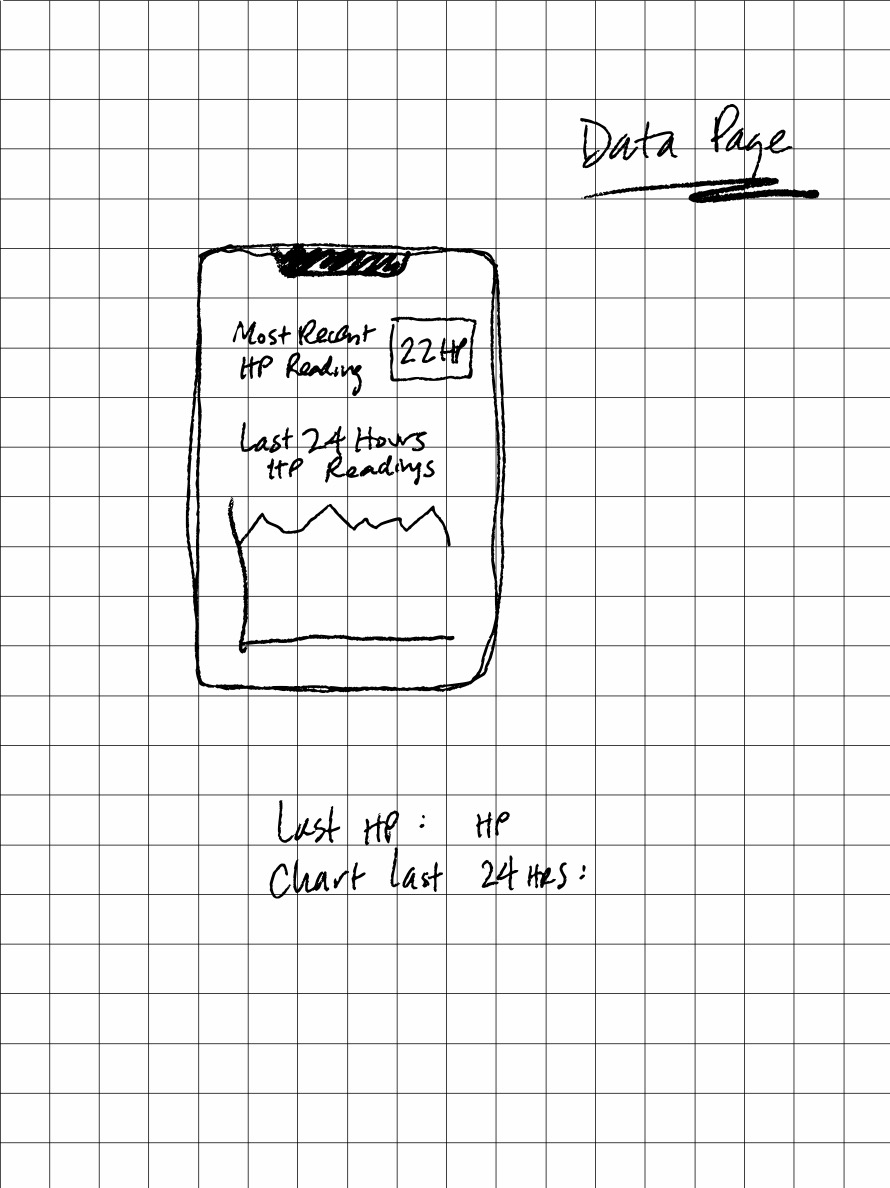 Data Page
Most Recent
HP Reading
22 HP
Last 24 Hours
HP Readings
Last HP : HP
Chart last 24 HRS :